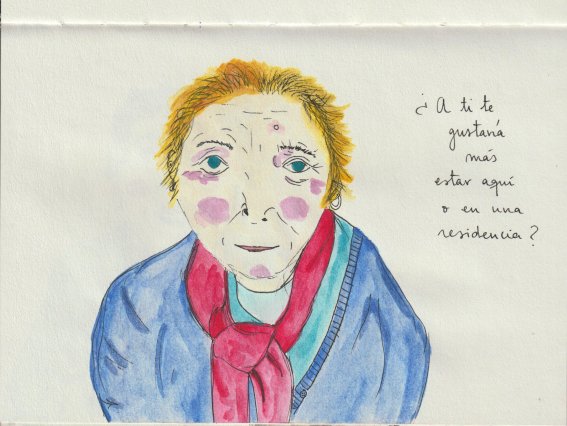 ¿A ti te
gustaría
más
estar aquí
o en una
residencia?